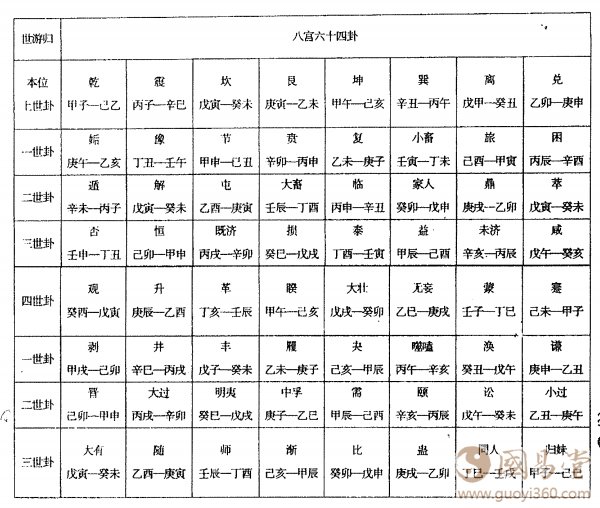 世游归 八宫六十四卦
本位 乾 震 坎 艮 坤 巽 离 兑
上世卦 甲子—己乙 丙子—辛巳 戊寅—癸未 庚寅—乙未 甲午—己亥 辛丑—丙午 戊甲—癸丑 乙卯—庚申
一世卦 姤 豫 节 贲 复 小畜 旅 困
庚午—乙亥 丁丑—壬午 甲申—己丑 辛卯—丙申 乙未—庚子 壬寅—丁未 己酉—甲寅 丙辰—辛酉
二世卦 遁 解 屯 大畜 临 家人 鼎 萃
辛未—丙子 戊寅—癸未 乙酉—庚寅 壬辰—丁酉 丙申—辛丑 癸卯—戊申 庚戌—乙卯 戊寅—癸未
三世卦 否 恒 既济 损 泰 益 未济 咸
壬申—丁丑 己卯—甲申 丙戌—辛卯 癸巳—戊戌 丁酉—壬寅 甲辰—己酉 辛亥—丙辰 戊午—癸亥
四世卦 观 升 革 睽 大壮 无妄 蒙 蹇
癸酉—戊寅 庚辰—乙酉 丁亥—壬辰 甲午—己亥 戊戌—癸卯 乙巳—庚戌 壬子—丁巳 己未—甲子
一世卦 剥 井 丰 履 夬 噬嗑 涣 谦
甲戌—己卯 辛巳—丙戌 戊子—癸未 乙未—庚子 己亥—甲辰 丙午—辛亥 癸丑—戊午 庚申—乙丑
二世卦 晋 大过 明夷 中孚 需 颐 讼 小过
己卯—甲申 丙戌—辛卯 癸巳—戊戌 庚子—乙巳 甲辰—己酉 辛亥—丙辰 戊午—癸未 乙丑—庚午
三世卦 大有 随 师 渐 比 蛊 同人 归妹
戊寅—癸未 乙酉—庚寅 壬辰—丁酉 己亥—甲辰 癸卯—戊申 庚戌—乙卯 丁巳—壬戌 甲子—己巳
國易堂
www.guoyi360.com